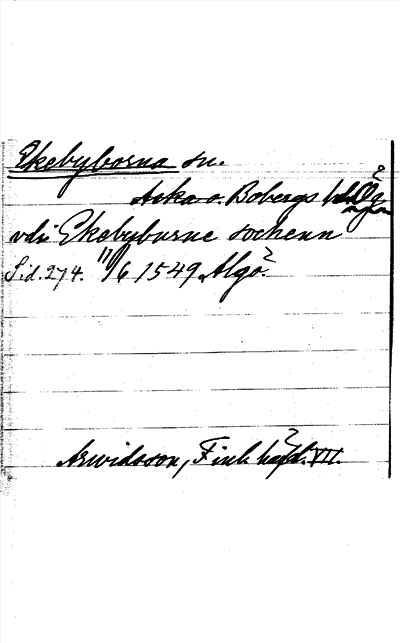 Ekebyborna sn.
Aska o. Bobergs hd Ög
vdi Ekebyburne sochenn
Sid. 274. 17/6 1549 Algö?
Arwidsson, Finl. häfd. VII.